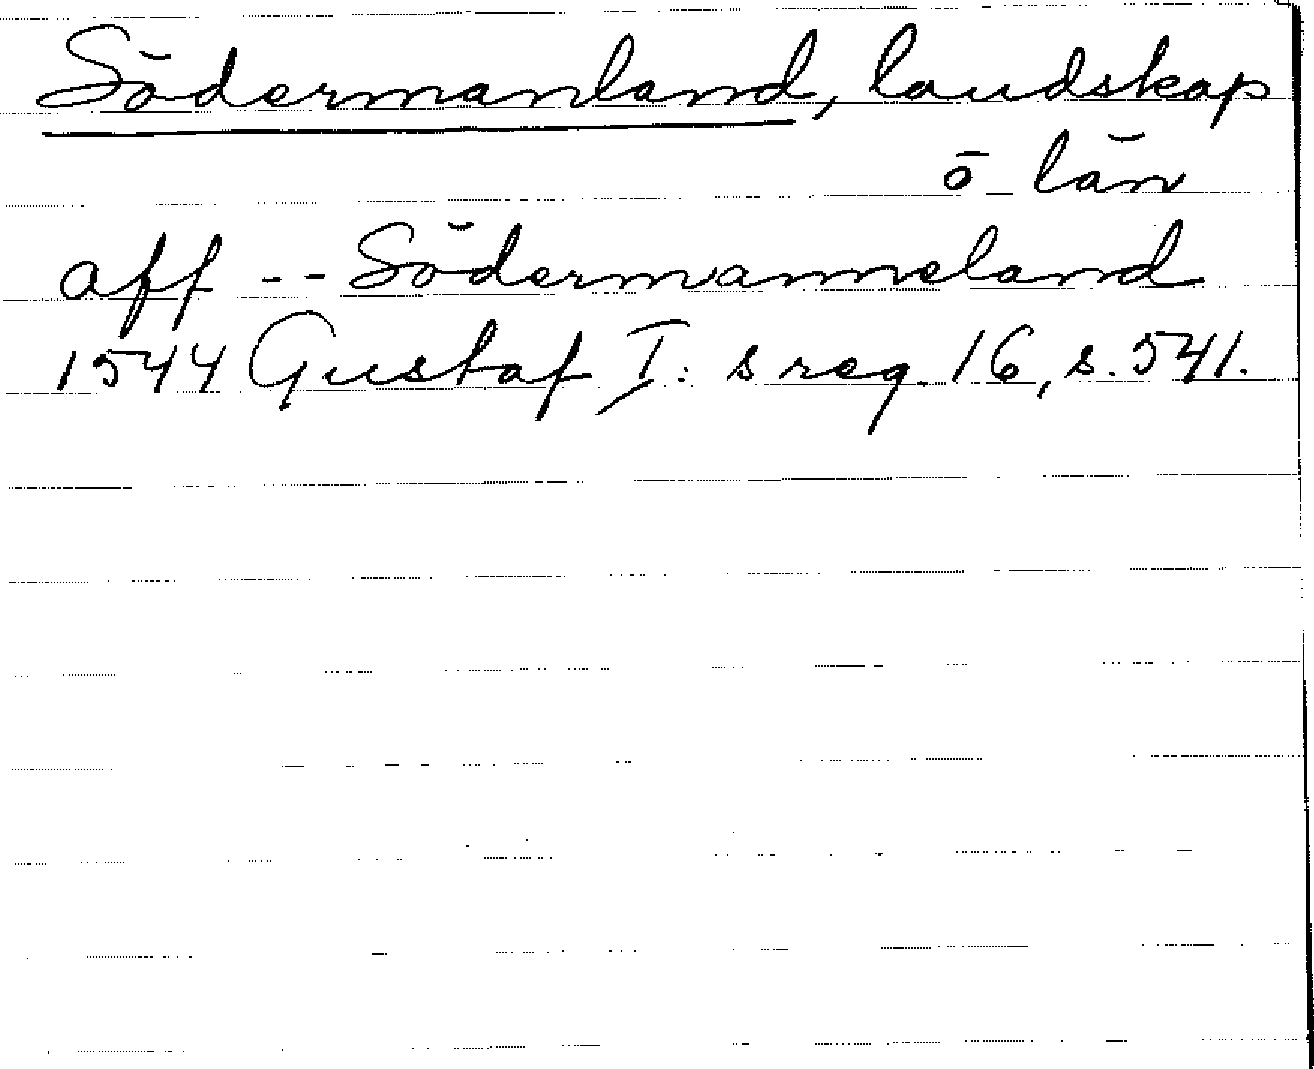 Södermanland, landskap
o län
aff -- Södermanneland
1544 Gustaf I:s reg. 16, s. 541.